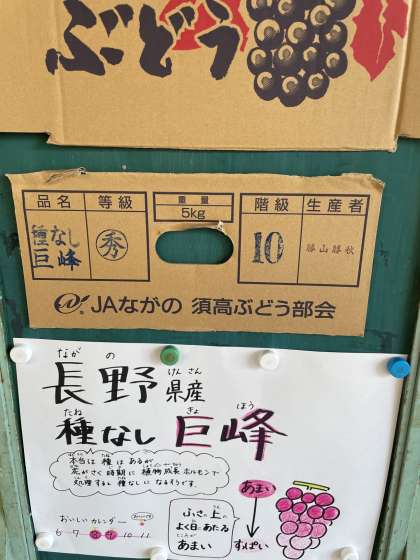 ぶどう
品名 等級 重量 階級 生産者
種なし 巨峰 秀 5kg 10 勝山勝秋
JAながの 須高ぶどう部会
ながの けんさん
長野県産
たね きょ ほう
種なし 巨峰
本当は種はあるが
花がさく時期に植物成長ホルモンで
処理すると種なしになるそうです。
おいしいカレンダー
6 7 8 9 10 11
ふさの上の
よく日のあたる
ところが
あまい
あまい
すっぱい